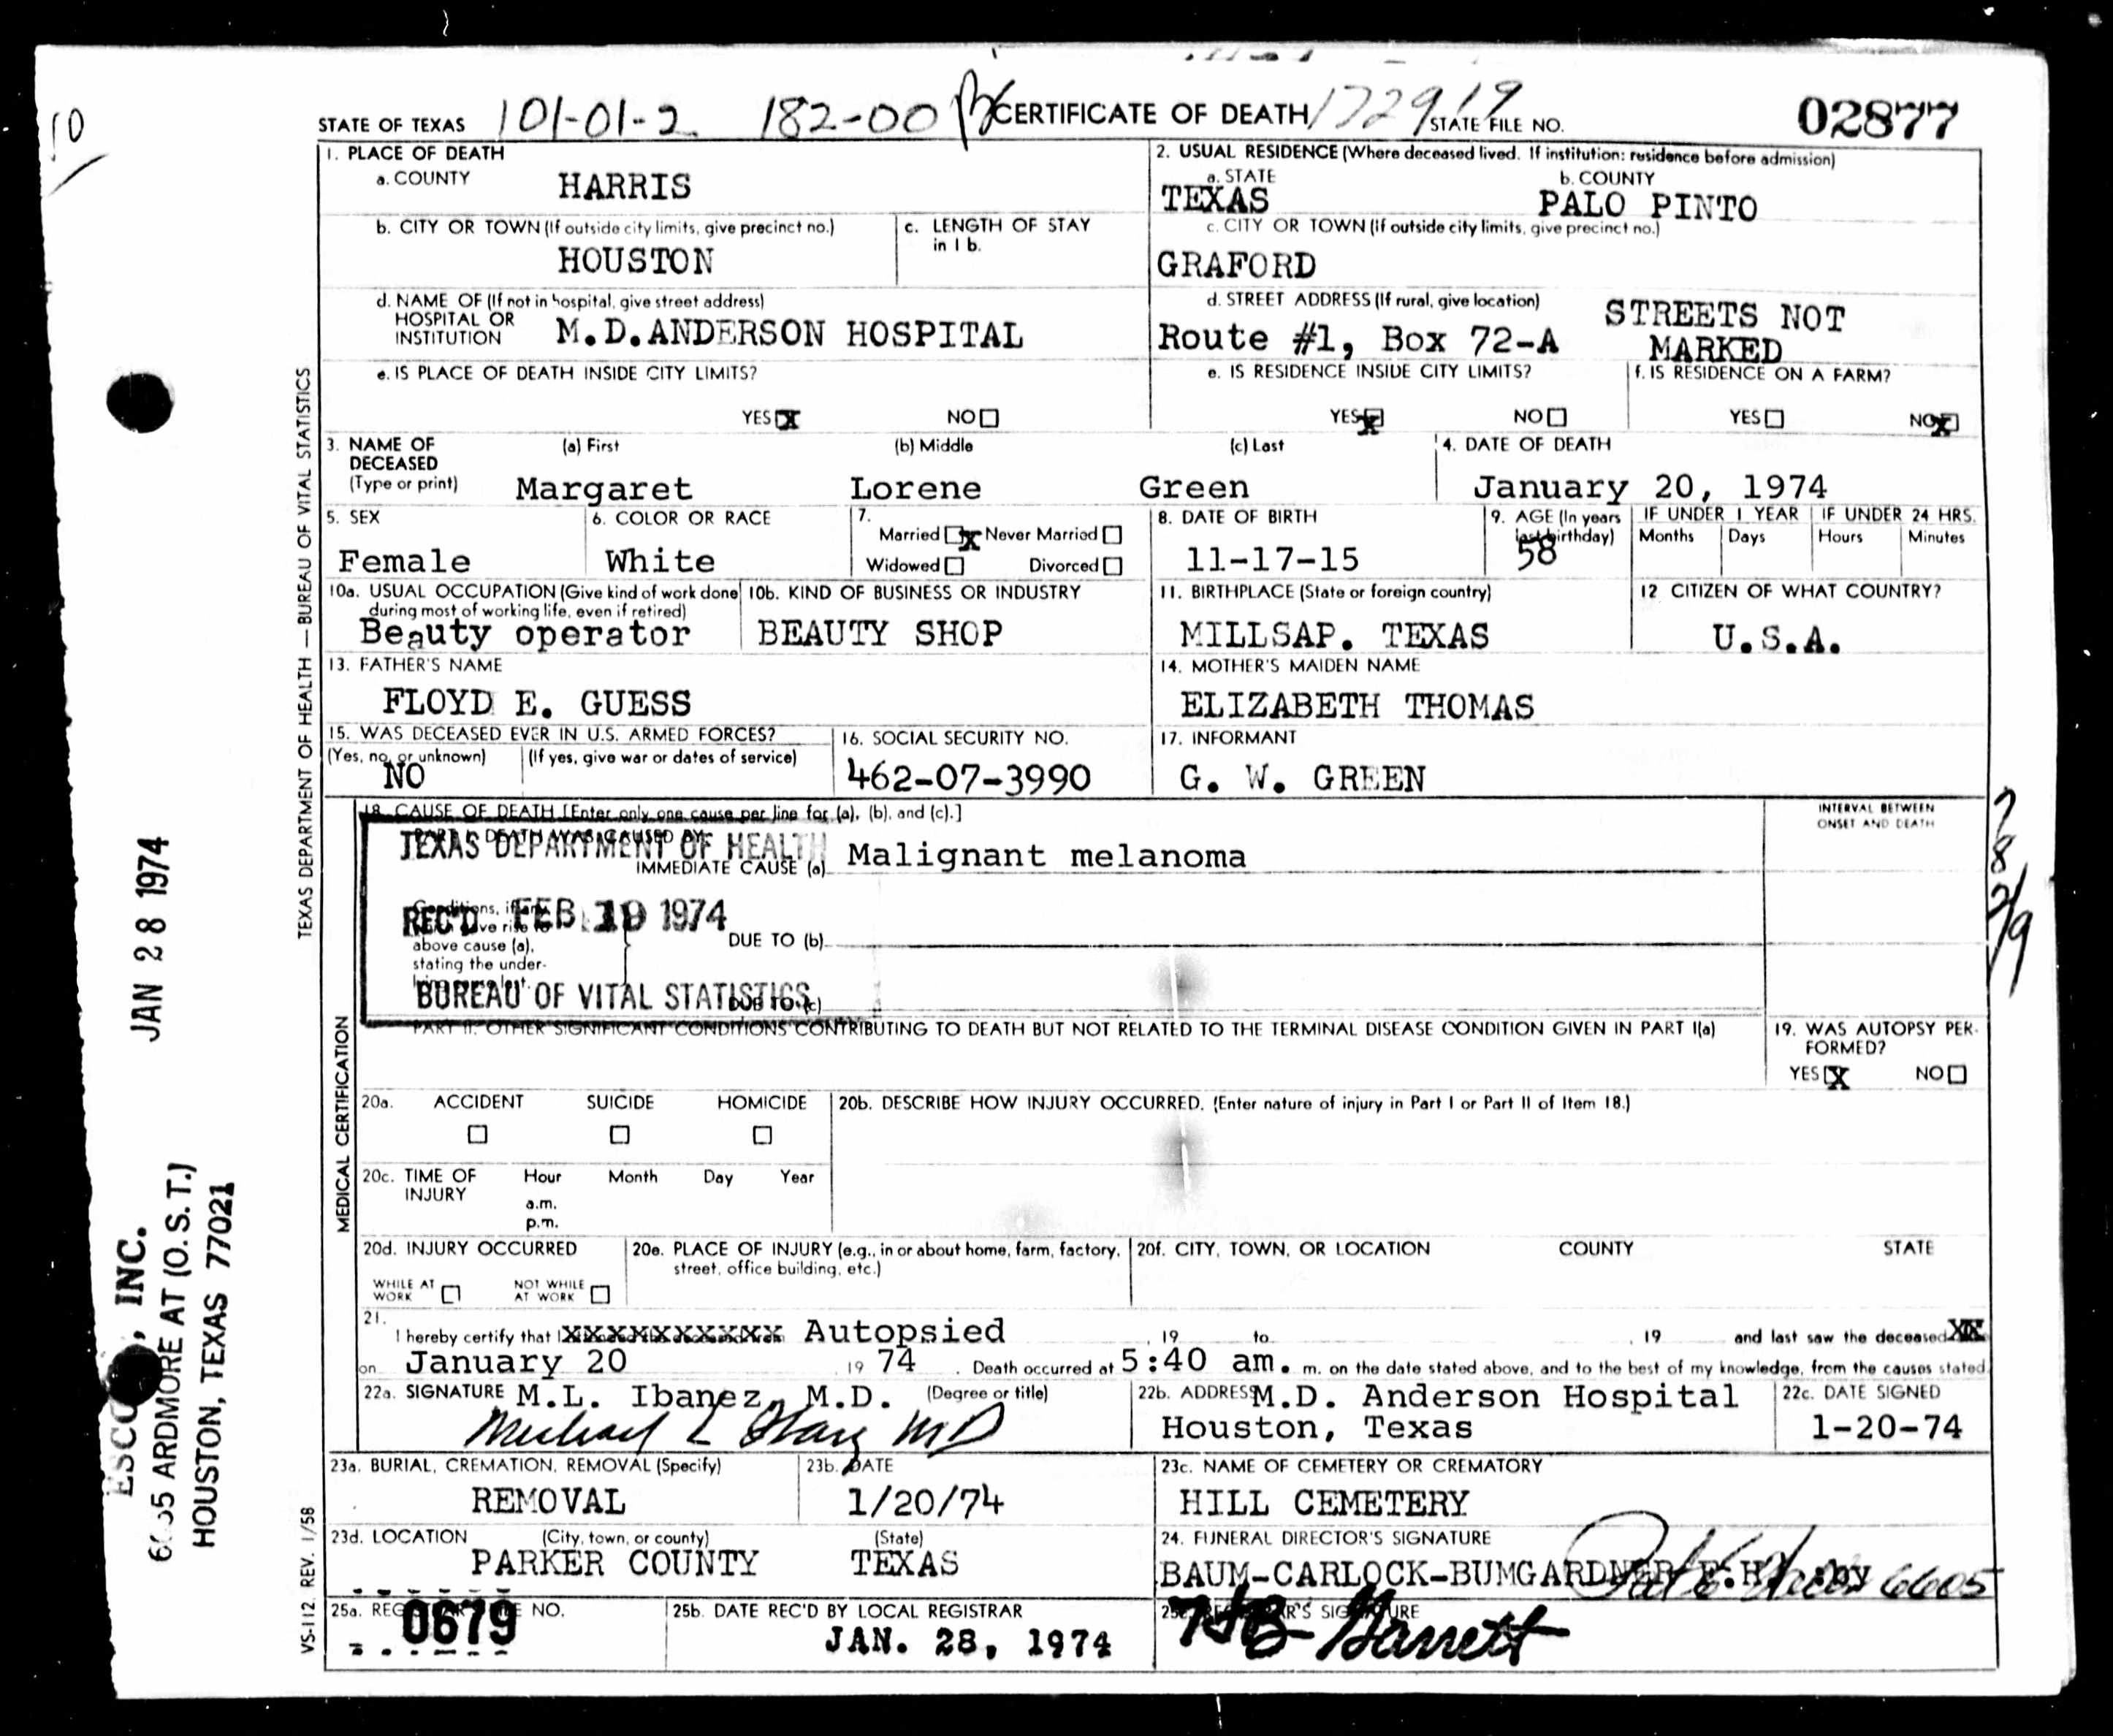 10
STATE OF TEXAS 101-01-2 182-00 CERTIFICATE OF DEATH 172919 STATE FILE NO. 02877
1. PLACE OF DEATH
a. COUNTY HARRIS
2. USUAL RESIDENCE (Where deceased lived. If institution: residence before admission)
a. STATE TEXAS b. COUNTY PALO PINTO
b. CITY OR TOWN (If outside city limits, give precinct no.) HOUSTON
c. LENGTH OF STAY in 1 b.
c. CITY OR TOWN (If outside city limits, give precinct no.)
GRAFORD
d. NAME OF (If not in hospital, give street address)
HOSPITAL OR
INSTITUTION M.D.ANDERSON HOSPITAL
d. STREET ADDRESS (If rural, give location)
Route #1, Box 72-A STREETS NOT
MARKED
e. IS PLACE OF DEATH INSIDE CITY LIMITS?
YES X NO
e. IS RESIDENCE INSIDE CITY LIMITS?
YES X NO
f. IS RESIDENCE ON A FARM?
YES NO X
3. NAME OF DECEASED (Type or print)
(a) First (b) Middle (c) Last
Margaret Lorene Green
4. DATE OF DEATH
January 20, 1974
5. SEX
Female
6. COLOR OR RACE
White
7.
Married X Never Married
Widowed Divorced
8. DATE OF BIRTH
11-17-15
9. AGE (In years last birthday)
58
IF UNDER 1 YEAR IF UNDER 24 HRS.
Months Days Hours Minutes
10a. USUAL OCCUPATION (Give kind of work done
during most of working life, even if retired)
Beauty operator
10b. KIND OF BUSINESS OR INDUSTRY
BEAUTY SHOP
11. BIRTHPLACE (State or foreign country)
MILLSAP. TEXAS
12 CITIZEN OF WHAT COUNTRY?
U.S.A.
13. FATHER'S NAME
FLOYD E. GUESS
14. MOTHER'S MAIDEN NAME
ELIZABETH THOMAS
15. WAS DECEASED EVER IN U.S. ARMED FORCES?
(Yes, no, or unknown) (If yes, give war or dates of service)
NO
16. SOCIAL SECURITY NO.
462-07-3990
17. INFORMANT
G. W. GREEN
18. CAUSE OF DEATH [Enter only one cause per line for (a), (b), and (c).]
INTERVAL BETWEEN
ONSET AND DEATH
PART I. DEATH WAS CAUSED BY:
TEXAS DEPARTMENT OF HEALTH
IMMEDIATE CAUSE (a) Malignant melanoma
REC'D FEB 19 1974
Conditions, if any,
which gave rise to
above cause (a),
stating the under-
lying cause last.
DUE TO (b)
BUREAU OF VITAL STATISTICS
DUE TO (c)
PART II. OTHER SIGNIFICANT CONDITIONS CONTRIBUTING TO DEATH BUT NOT RELATED TO THE TERMINAL DISEASE CONDITION GIVEN IN PART I(a)
19. WAS AUTOPSY PER-
FORMED?
YES X NO
20a. ACCIDENT SUICIDE HOMICIDE
20b. DESCRIBE HOW INJURY OCCURRED. (Enter nature of injury in Part I or Part II of Item 18.)
20c. TIME OF INJURY Hour Month Day Year
a.m.
p.m.
20d. INJURY OCCURRED
WHILE AT WORK NOT WHILE AT WORK
20e. PLACE OF INJURY (e.g., in or about home, farm, factory,
street, office building, etc.)
20f. CITY, TOWN, OR LOCATION COUNTY STATE
21.
I hereby certify that I XXXXXXXXXXX Autopsied , 19 to , 19 and last saw the deceased XX
on January 20 19 74 . Death occurred at 5:40 am. m. on the date stated above, and to the best of my knowledge, from the causes stated
22a. SIGNATURE M.L. Ibanez, M.D. (Degree or title)
22b. ADDRESS M.D. Anderson Hospital
Houston, Texas
22c. DATE SIGNED
1-20-74
23a. BURIAL, CREMATION, REMOVAL (Specify)
REMOVAL
23b. DATE
1/20/74
23c. NAME OF CEMETERY OR CREMATORY
HILL CEMETERY
23d. LOCATION (City, town, or county) (State)
PARKER COUNTY TEXAS
24. FUNERAL DIRECTOR'S SIGNATURE
BAUM-CARLOCK-BUMGARDNER F.H. by 6605
25a. NO.
0679
25b. DATE REC'D BY LOCAL REGISTRAR
JAN. 28, 1974
25c. REGISTRAR'S SIGNATURE
Barrett
TEXAS DEPARTMENT OF HEALTH — BUREAU OF VITAL STATISTICS
MEDICAL CERTIFICATION
VS-112. REV. 1/58
JAN 28 1974
INC.
ARDMORE AT (O.S.T.)
HOUSTON, TEXAS 77021